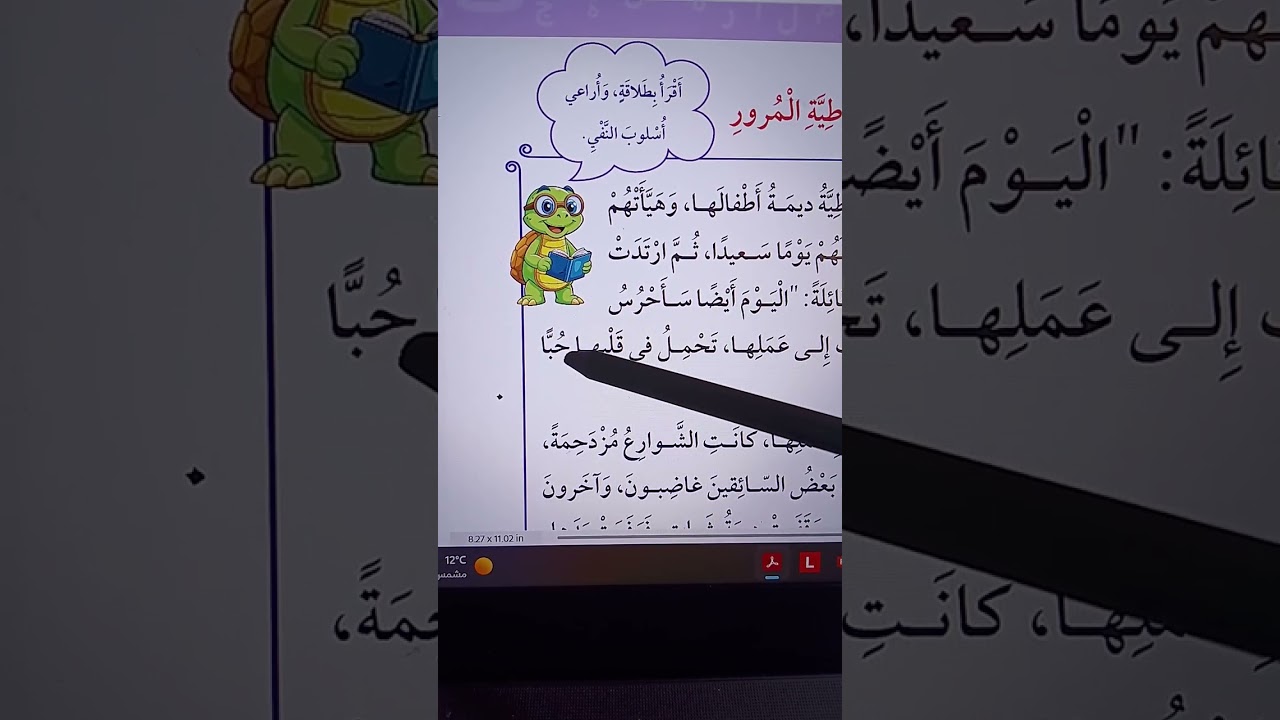 أَقْرَأُ بِطَلاقَةٍ، وَأُراعي
أُسْلوبَ النَّفْيِ.
الْمُرورِ
دیمَةُ أَطْفالَهـا، وَهَيَّأَتْهُمْ
يَوْمًا سَـعيدًا، ثُـمَّ ارْتَدَتْ
"الْيَـوْمَ أَيْضًا سَـأَحْرُسُ
إِلـى عَمَلِهـا، تَحْمِـلُ في قَلْبِهـا حُبًّا
كانَـتِ الشَّـوارِعُ مُزْدَحِمَةً،
بَعْضُ السّـائِقينَ غاضِبـونَ، وَآخَرونَ
8.27 x 11.02 in
12°C
مشمس